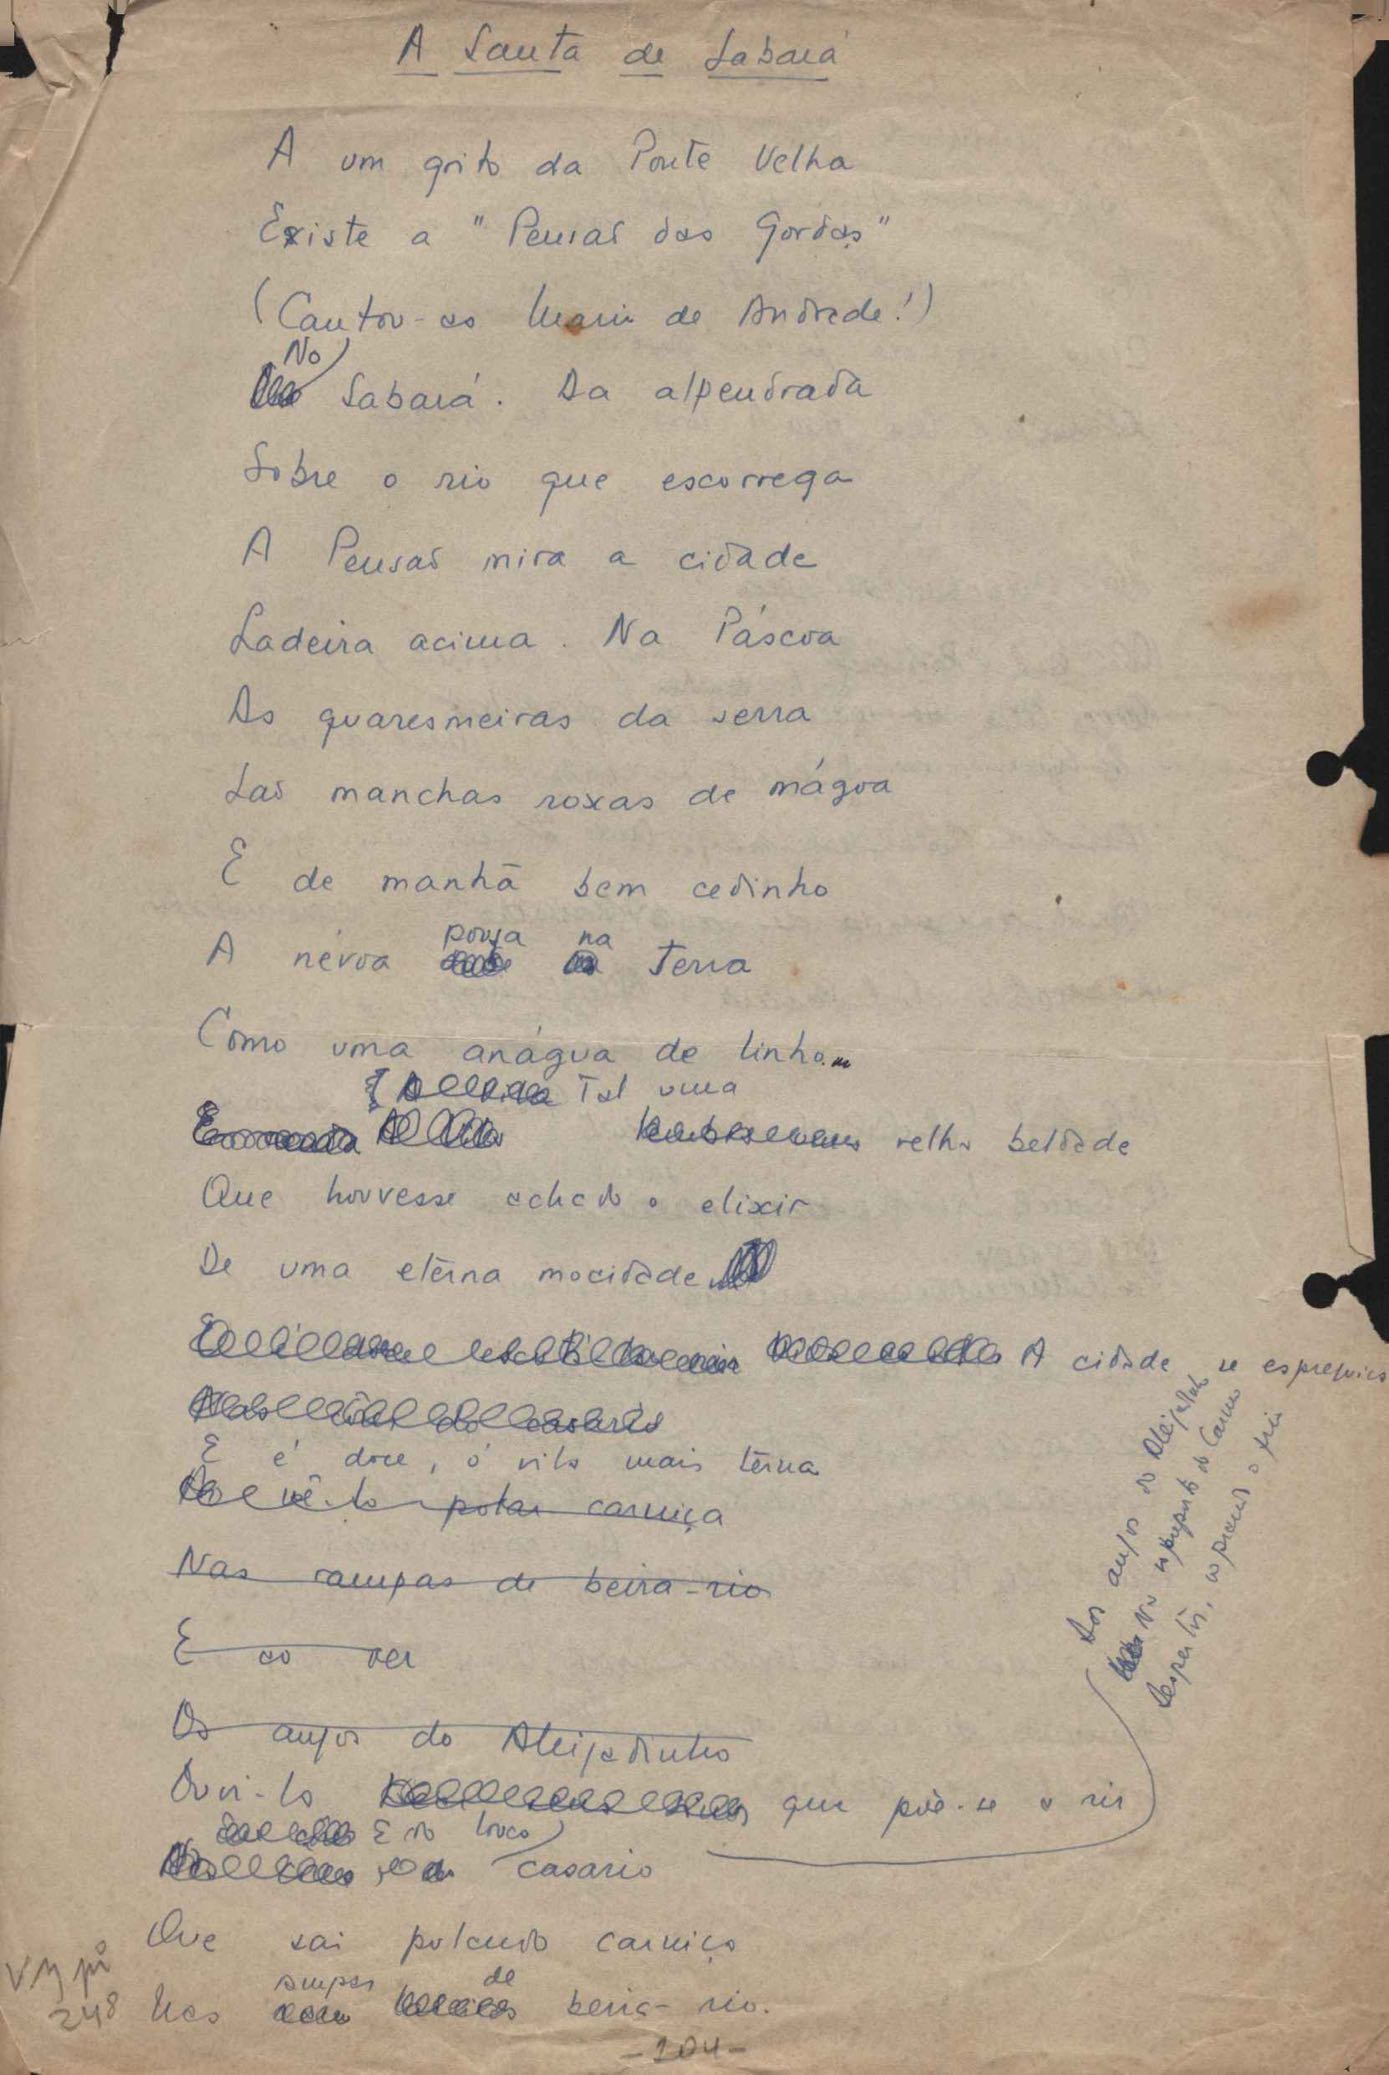 A Santa de Sabará
A um grito da Ponte Velha
Existe a "Pensão das Gordas"
(Cantou-as Mario de Andrade!)
No
Sabará. Da alpendrada
Sobre o rio que escorrega
A Pensão mira a cidade
Ladeira acima. Na Páscoa
As quaresmeiras da serra
São manchas roxas de mágoa
E de manhã bem cedinho
pousa na
A névoa terra
Como uma anágua de linho...
Tal uma
velha beldade
Que houvesse achado o elixir
De uma eterna mocidade
A cidade se espreguiça
E é doce, ó vila mais terna
vê-la pular carniça
Nas rampas de beira-rio
E ao ver
Os anjos do Aleijadinho
Ouvi-la que põe-se a rir
E no louco
casario
Que sai pulando carniça
rampas de
Nas beira-rio.
Dos anjos do Aleijadinho
No do Carmo
Desperta, o frio
VM pi
248
-104-